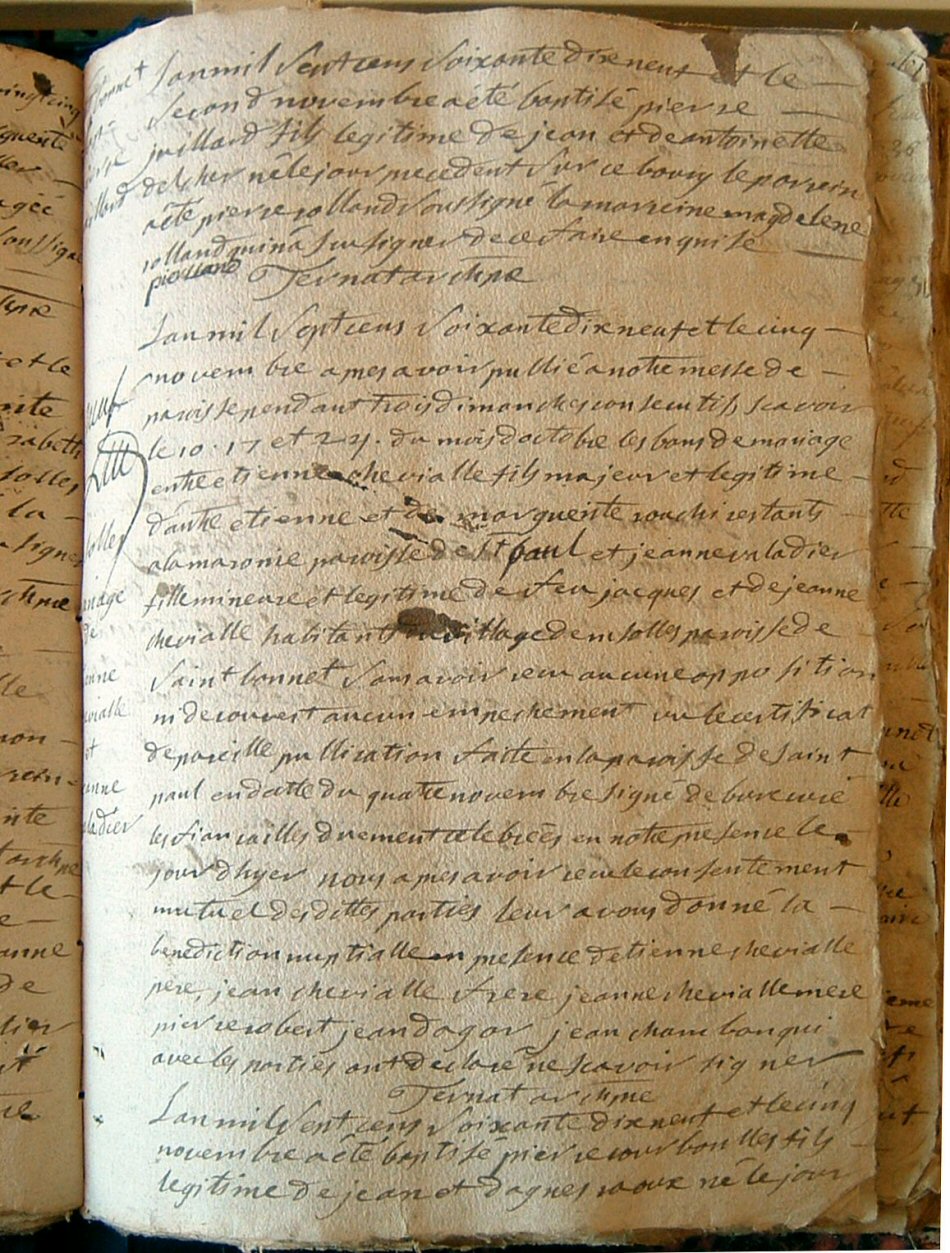 Lan mil Sept cens Soixante dix neuf et le
Second novembre a été baptisé pierre
juillard fils legitime de jean et de antoinette
delcher né le jour precedent sur ce bourg le parrein
a été pierre rolland Soussigné la marreine magdelene
rolland qui n'a sçu signer de ce faire enquise
Ternat archpre
Lan mil Sept cens Soixante dix neuf et le cinq
novembre apres avoir publié a notre messe de
paroisse pendant trois dimanches consecutifs scavoir
le 10. 17 et 24. du mois doctobre les bans de mariage
entre etienne chevialle fils majeur et legitime
dautre etienne et de marguerite rouchi restants
a la maronie paroisse de St paul et jeanne valadier
fille mineure et legitime de feu jacques et de jeanne
chevialle habitants au village demsolles paroisse de
Saint bonnet Sans avoir reçu aucune opposition
ni decouvert aucun empechement vu le certificat
de pareille publication faite en la paroisse de Saint
paul en datte du quatre novembre signé de burcurie
les fiancailles duement celebrées en notre presence le
jour dhyer nous apres avoir reçu le consentement
mutuel desdittes parties leur avons donné la
benediction nuptialle en presence detienne chevialle
pere, jean chevialle frere jeanne chevialle mere
pierre robert jean dagor jean chambon qui
avec les parties ont declaré ne scavoir signer
Ternat archpre
Lan mil Sept cens Soixante dix neuf et le cinq
novembre a été baptisé pierre courboulles fils
legitime de jean et dagnes roux né le jour